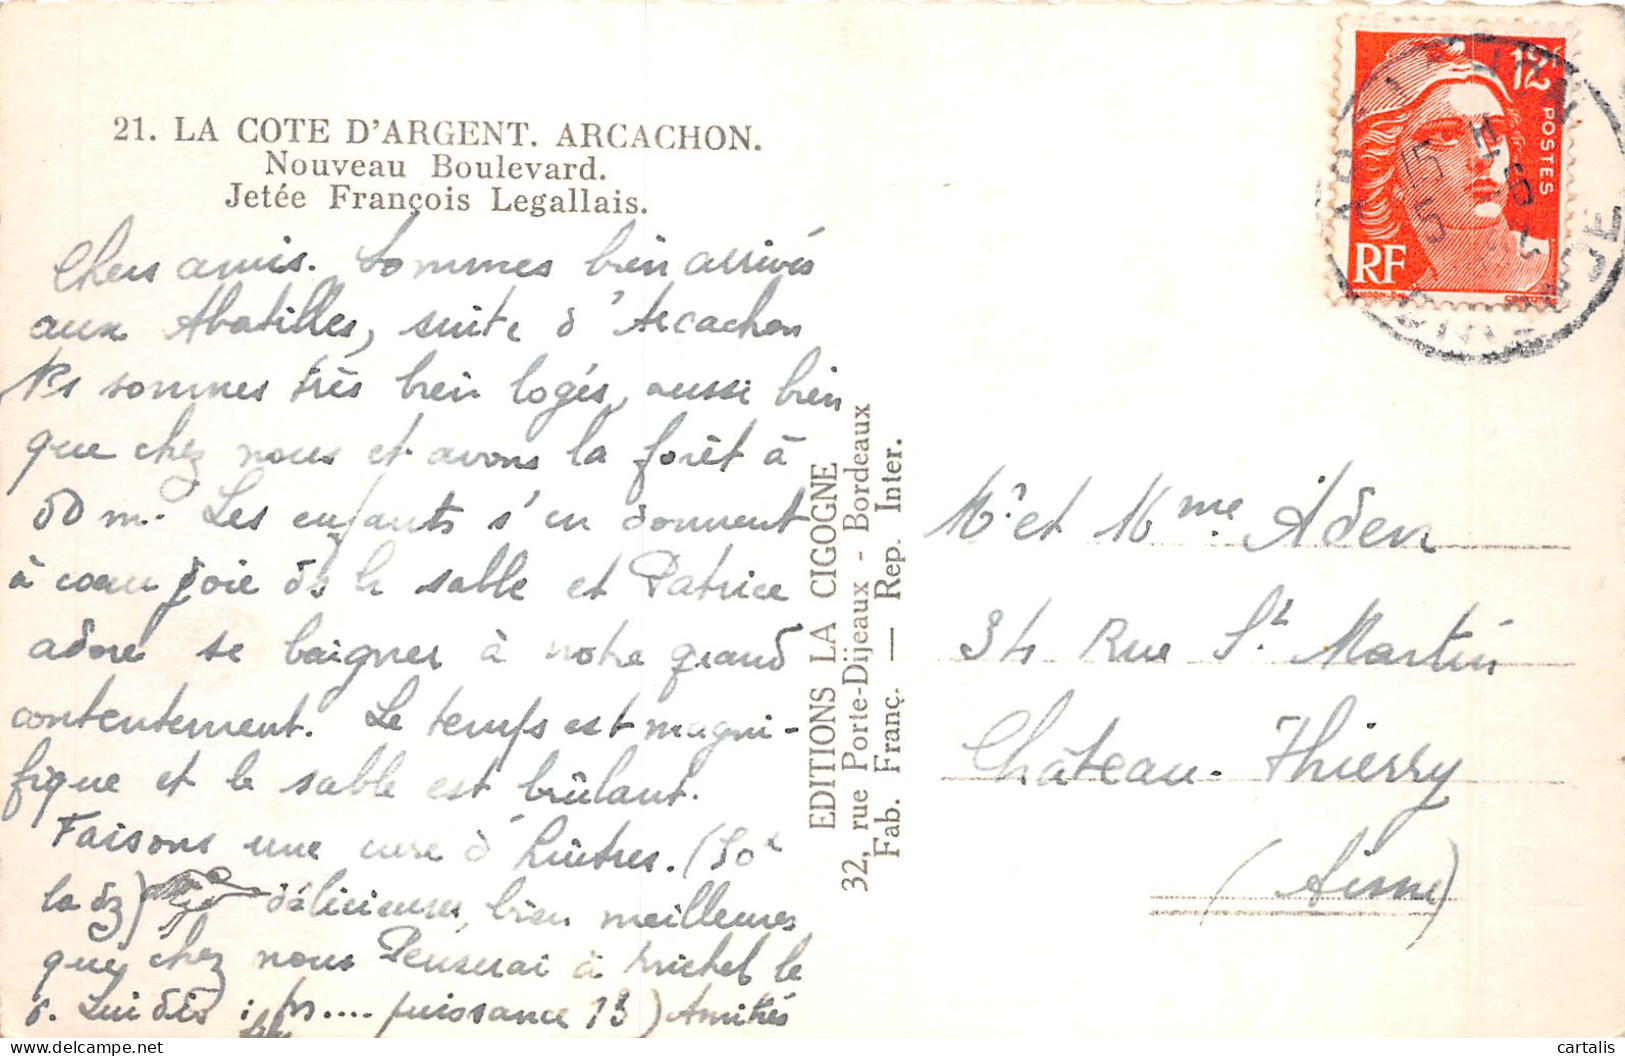 21. LA COTE D'ARGENT. ARCACHON.
Nouveau Boulevard.
Jetée François Legallais.
Chers amis. Sommes bien arrivés
aux Abatilles, suite d'Arcachon
Ns sommes très bien logés, aussi bien
que chez nous et avons la forêt à
50 m. Les enfants s'en donnent
à coeur joie ds le sable et Patrice
adore se baigner à notre grand
contentement. Le temps est magni-
fique et le sable est brûlant.
Faisons une cure d'huîtres. (50f
la dz) délicieuses, bien meilleures
que chez nous Penserai à Michel le
6. Lui dis : M.... puissance 13) Amitiés
EDITIONS LA CIGOGNE
32, rue Porte-Dijeaux - Bordeaux
Fab. Franç. — Rep. Inter.
12F
POSTES
RF
GANDON.DEL
Mr et Mme Aden
34 Rue St Martin
Château-Thierry
(Aisne)
cartalis